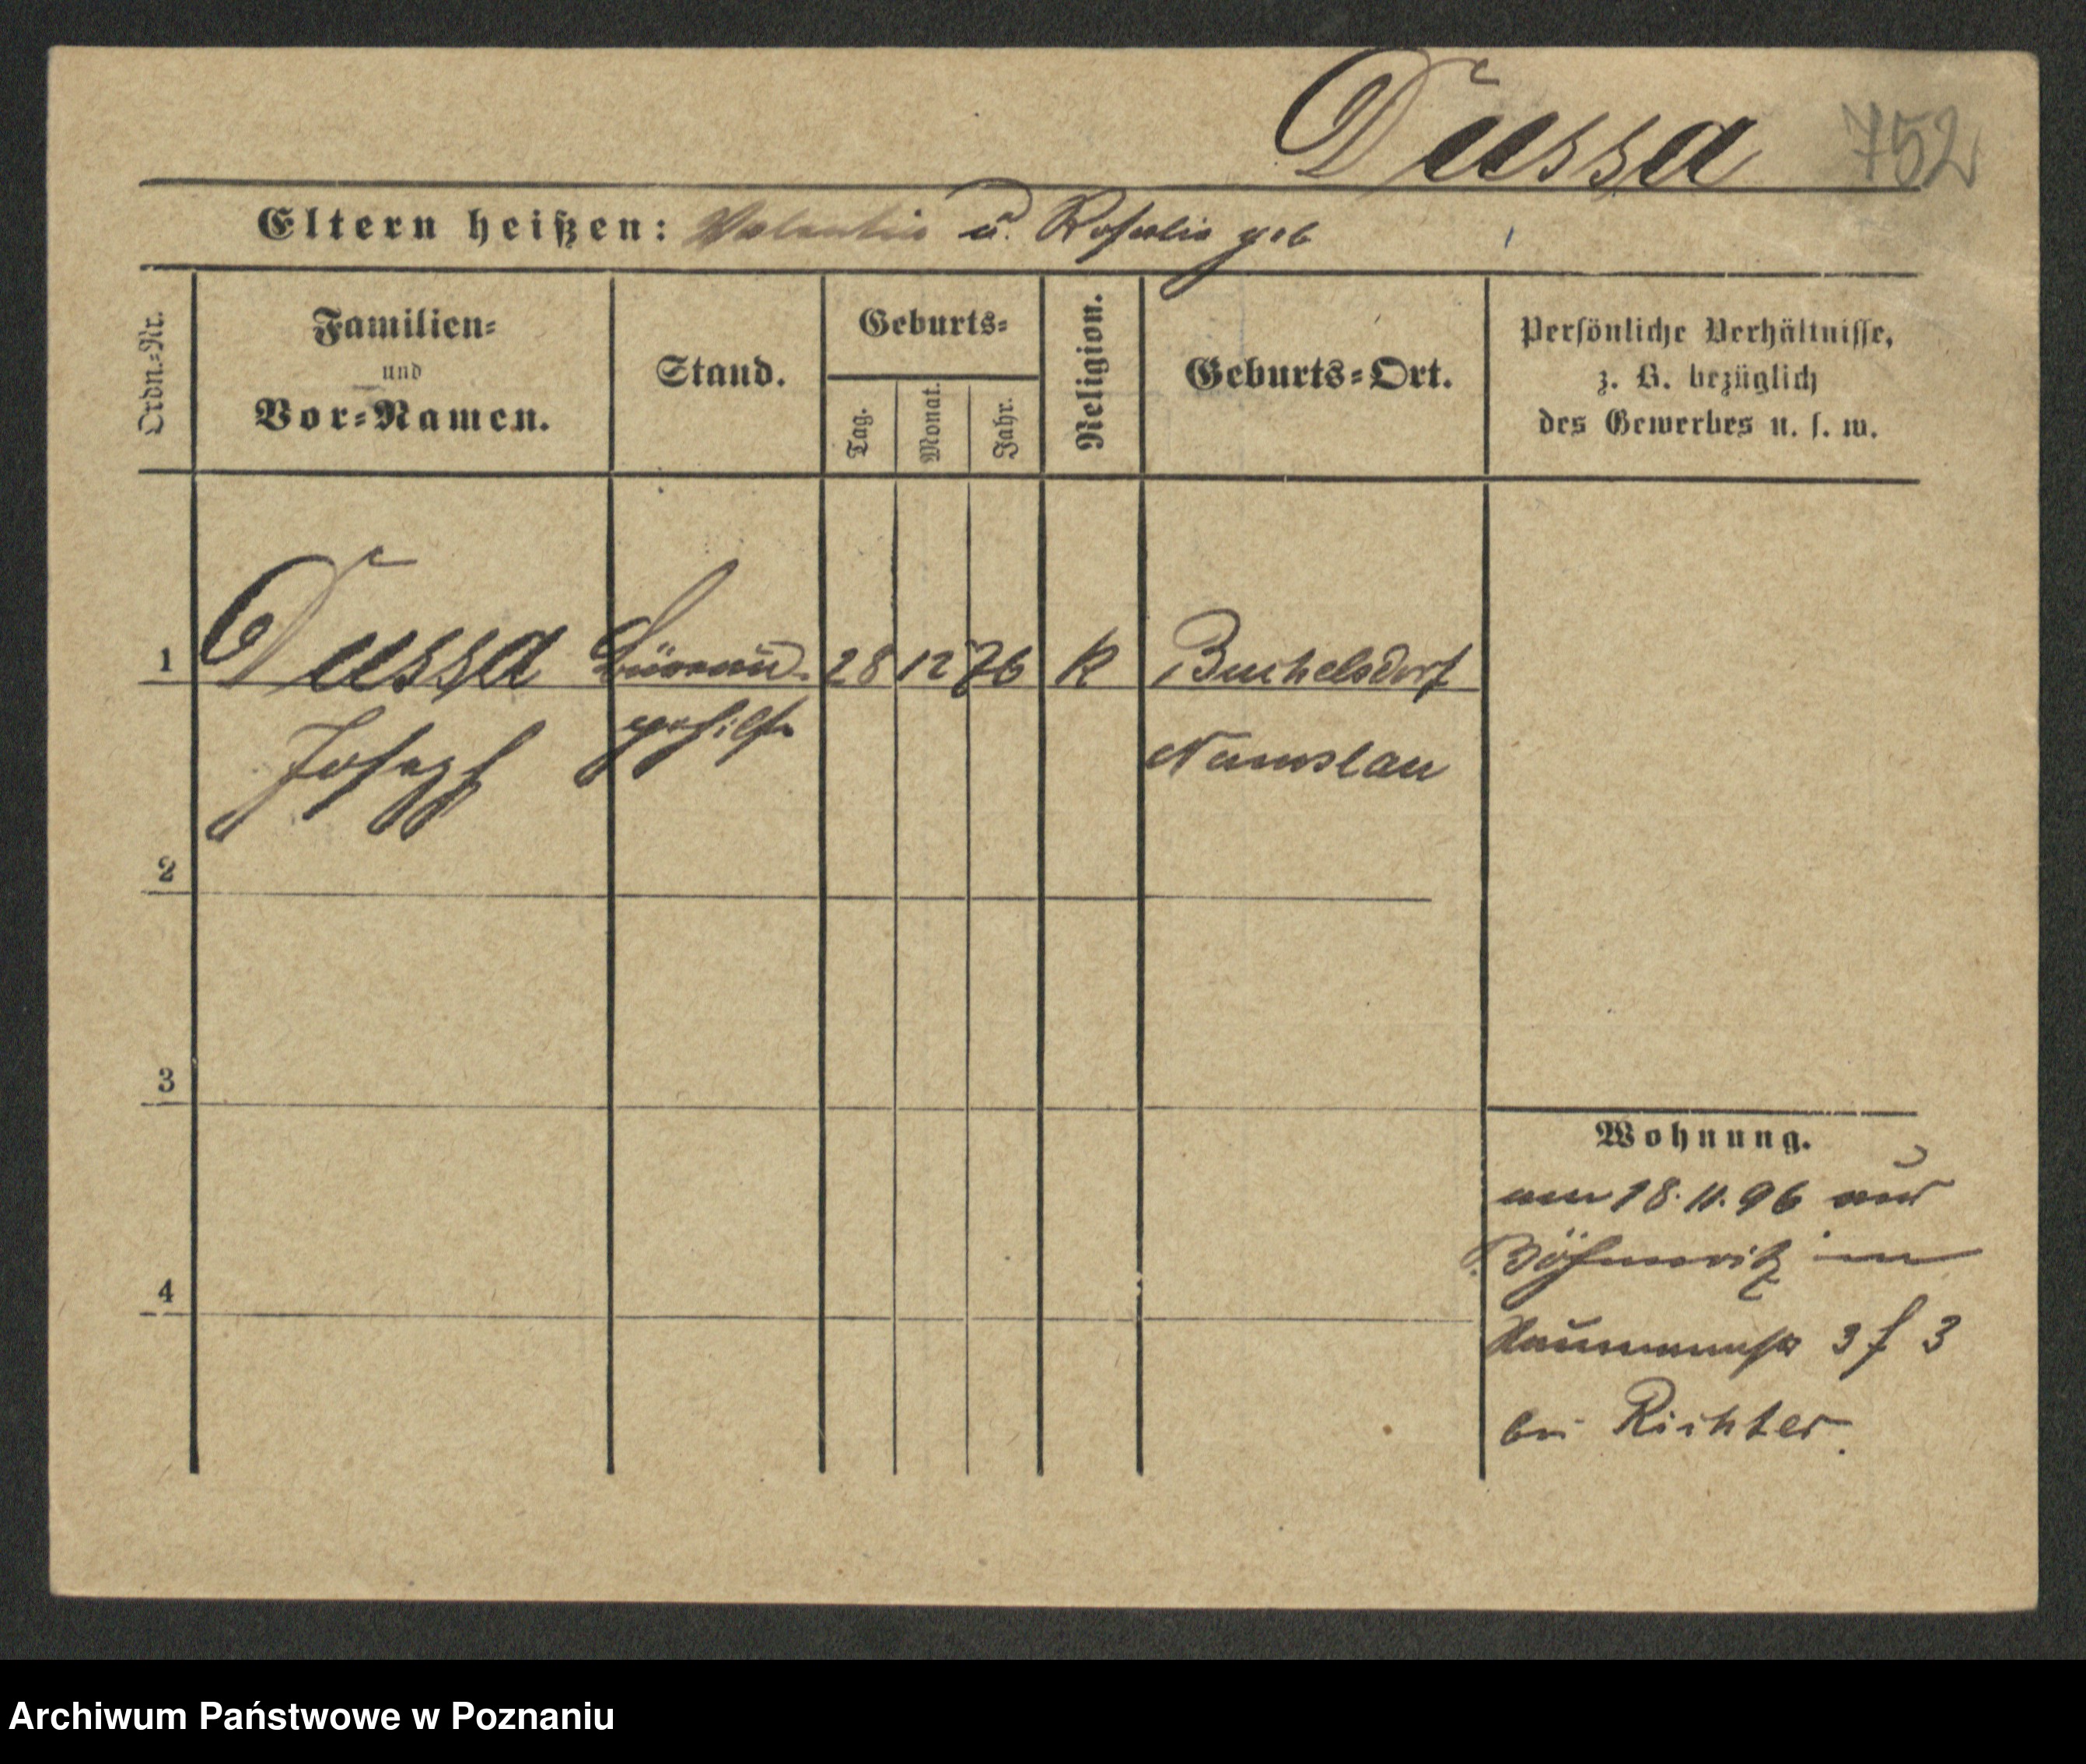 Dussa 752
Eltern heißen: Valentin u. Rosalie geb
Ordn.-Nr.
Familien-
und
Vor-Namen.
Stand.
Geburts-
Tag.
Monat.
Jahr.
Religion.
Geburts-Ort.
Persönliche Verhältnisse,
z. B. bezüglich
des Gewerbes u. s. w.
1 Dussa 28 12 76 K Buchelsdorf
Joseph gehilfe Namslau
2
3
4
Wohnung.
am 18. 11. 96 aus
Böhmwitz in
Naumannstr 3 f 3
bei Richter.
Archiwum Państwowe w Poznaniu